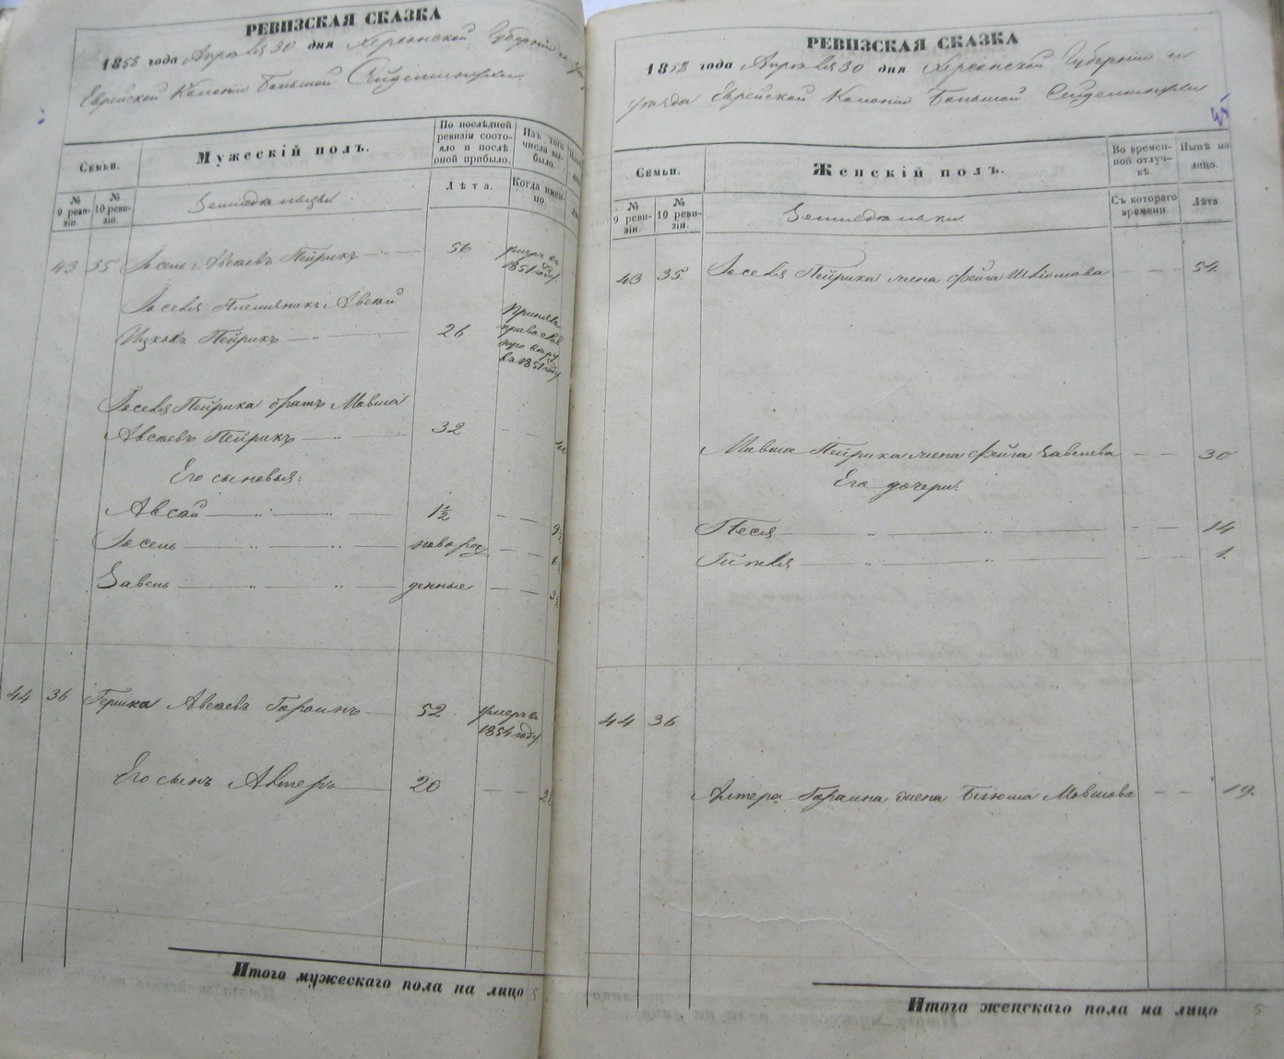 РЕВИЗСКАЯ СКАЗКА
1858 года Апреля 30 дня Херсонской Губерніи и
Еврейской Колоніи Большой Сейдеминухи
Семьи.
Мужескій полъ.
По послѣдней ревизіи состояло и послѣ оной прибыло.
Изъ того числа выбыло.
№ 9 ревизіи.
№ 10 ревизіи.
Земледѣльцы.
Лѣта.
Когда именно.
43 35 Іосель Авсеевъ Пейрикъ 56 умеръ въ 1851 году
Іоселя Племянникъ Авсей
Ицковъ Пейрикъ 26 Принялъ православную вѣру въ 1851 году
Іоселя Пейрика братъ Мовша
Авсеевъ Пейрикъ 32
Его сыновья:
Авсей 1½
Іосель новорож
Завель денные
44 36 Гершка Авсеевъ Гораинъ 52 умеръ въ 1854 году
Его сынъ Алтеръ 20
Итого мужескаго пола на лицо 5
РЕВИЗСКАЯ СКАЗКА
1858 года Апреля 30 дня Херсонской Губерніи и
уезда Еврейской Колоніи Большой Сейдеминухи
Семьи.
Женскій полъ.
Во временной отлучкѣ.
Нынѣ на лицо.
№ 9 ревизіи.
№ 10 ревизіи.
Съ котораго времени.
Лѣта.
43 35 Іоселя Пейрика жена Фейга Шліомова 54.
Мовша Пейрика жена Фейга Завелева 30
Его дочери:
Песя 14
Гитля 1.
44 36
Алтера Гораина жена Блюма Мовшова 19.
Итого женскаго пола на лицо 5